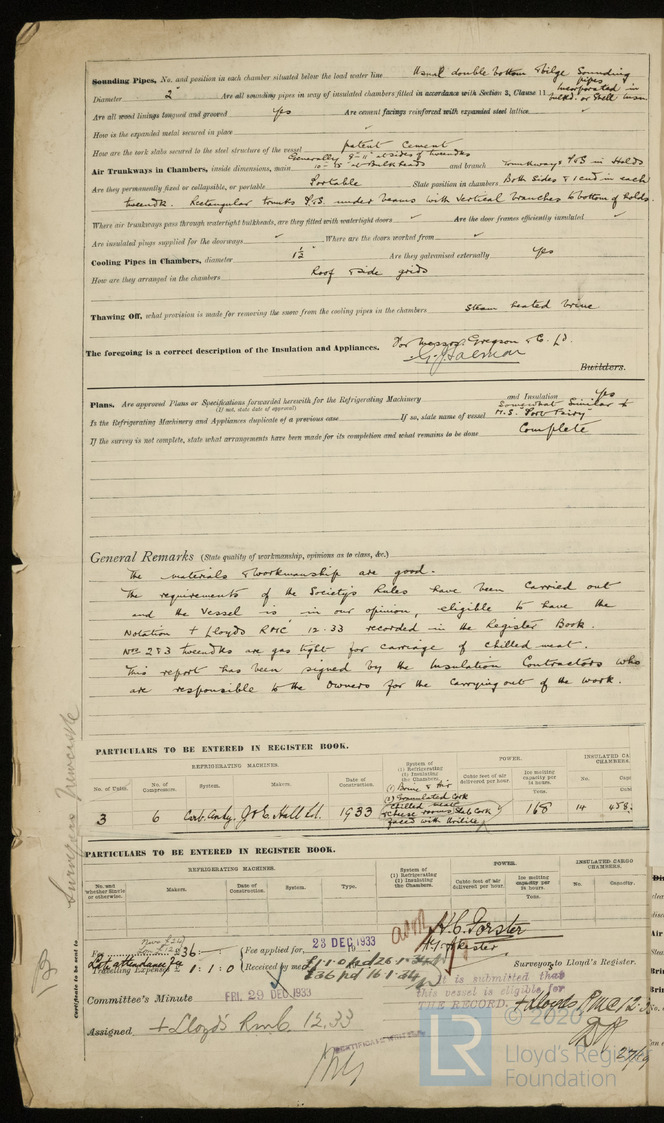 Sounding Pipes, No. and position in each chamber situated below the load water line Usual double bottom & bilge Sounding pipes
Diameter 2" Are all sounding pipes in way of insulated chambers fitted in accordance with Section 3, Clause 11 Incorporated in
Are all wood linings tongued and grooved Yes Are cement facings reinforced with expanded steel lattice
How is the expanded metal secured in place
How are the cork slabs secured to the steel structure of the vessel patent Cement
Air Trunkways in Chambers, inside dimensions, main Generally 9"-11" at sides of tweendks and branch Trunkways P&S in Holds
Are they permanently fixed or collapsible, or portable Portable State position in chambers Both Sides & 1 end in each
tweendk. Rectangular trunks P&S. under beams with vertical branches to bottom of holds.
Where air trunkways pass through watertight bulkheads, are they fitted with watertight doors ✓ Are the door frames efficiently insulated ✓
Are insulated plugs supplied for the doorways ✓ Where are the doors worked from ✓
Cooling Pipes in Chambers, diameter 1½" Are they galvanised externally Yes
How are they arranged in the chambers Roof & side grids
Thawing Off, what provision is made for removing the snow from the cooling pipes in the chambers Steam heated brine
The foregoing is a correct description of the Insulation and Appliances. For Messrs. Gregson & Co. Ld.
G. J. Salmon
Builders.
Plans. Are approved Plans or Specifications forwarded herewith for the Refrigerating Machinery and Insulation Yes
(If not, state date of approval)
Is the Refrigerating Machinery and Appliances duplicate of a previous case If so, state name of vessel Somewhat Similar to M.S. "Port Fairy"
If the survey is not complete, state what arrangements have been made for its completion and what remains to be done Complete
General Remarks (State quality of workmanship, opinions as to class, &c.)
The materials & workmanship are good.
The requirements of the Society's Rules have been carried out
and the Vessel is in our opinion, eligible to have the
Notation + Lloyds RMC 12.33 recorded in the Register Book.
Nos 2 & 3 tweendks are gas tight for carriage of chilled meat.
This report has been signed by the Insulation Contractors who
are responsible to the Owners for the carrying out of the work.
Surveyors Newcastle
Certificate to be sent to
PARTICULARS TO BE ENTERED IN REGISTER BOOK.
REFRIGERATING MACHINES. System of (1) Refrigerating (2) Insulating the Chambers. POWER. INSULATED CA CHAMBERS.
No. of Units. No. of Compressors. System. Makers. Date of Construction. Cubic feet of air delivered per hour. Ice melting capacity per 24 hours. Tons. No.
(1) Brine & Air
(2) Granulated Cork
3 6 Carb. Anhy. J & E Hall Ld. 1933 chilled meat & cheese rooms Slab Cork faced with 168 14
PARTICULARS TO BE ENTERED IN REGISTER BOOK.
REFRIGERATING MACHINES. System of (1) Refrigerating (2) Insulating the Chambers. POWER. INSULATED CARGO CHAMBERS.
No. and whether Single or otherwise. Makers. Date of Construction. System. Type. Cubic feet of air delivered per hour. Ice melting capacity per 24 hours. Tons. No. Capacity.
Fee £36 : Fee applied for, 28 DEC 1933 H. C. Forster
Travelling Expenses £ 1 : 1 : 0 Received by me, Surveyors to Lloyd's Register.
£1.1.0 pd 26.1.34
£36 pd 16.1.34
It is submitted that
this vessel is eligible for
THE RECORD. + Lloyds RMC 12.33
Committee's Minute FRI. 29 DEC 1933
Assigned + Lloyd's RMC 12,33
CERTIFICATE WRITTEN
© 2020
LR
Lloyd's Register
Foundation